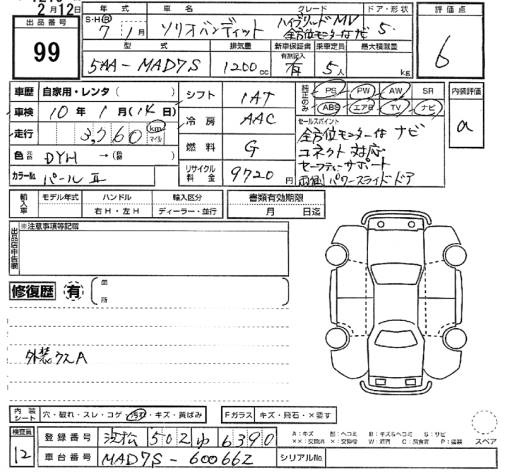 2月12日
出品番号
99
年式 車名 グレード ドア・形状
S・H・R 7年1月 ソリオバンディット ハイブリッドMV 5
全方位モニター付ナビ
型式 排気量 新車保証書 乗車定員 最大積載量
有無記入
5AA-MAD7S 1200cc 有 5人 kg
評価点
6
車歴 自家用・レンタ( )
車検 10年1月(14日)
走行 3,760 km マイル
色 DYH →(替)
カラーNo. パールⅡ
シフト 1AT
冷房 AAC
燃料 G
リサイクル料金 9720
PS PW AW SR
ABS エアB TV ナビ
セールスポイント
全方位モニター付ナビ
コネクト対応
セーフティサポート
両側パワースライドドア
内装評価
a
輸入車 モデル年式 ハンドル 輸入区分
年 右H・左H ディーラー・並行
書類有効期限
月 日迄
出品店申告欄
※注意事項等記載
修復歴 有 箇所
外装クスA
内装シート 穴・破れ・スレ・コゲ・汚れ・キズ・黄ばみ
Fガラス キズ・飛石・×要す
検査員
12
登録番号 浜松 502 ゆ 6390
車台番号 MAD7S-600662
シリアルNo.
スペア